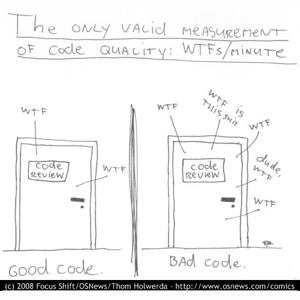 The only valid measurement
of code quality: WTFs/minute
WTF
code
review
WTF
Good code.
WTF
WTF is
this shit
WTF
code
review
dude,
WTF
WTF
Bad code.
(c) 2008 Focus Shift/OSNews/Thom Holwerda - http://www.osnews.com/comics